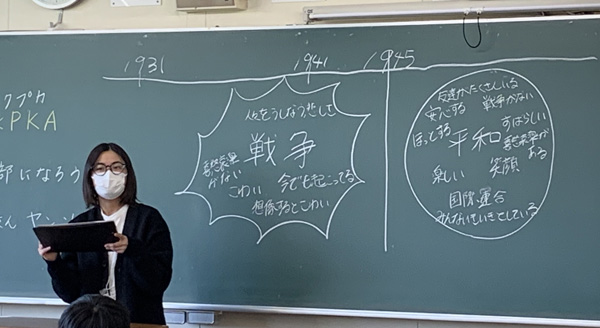 1931
1941
1945
クプカ
PKA
部になろう
ヤン
人をうしなう悲しさ
戦争
がない
こわい
今でも起こってる
想像するとこわい
友達がたくさんいる
安心する
戦争がない
ほっとする
すばらしい
平和
ある
楽しい
笑顔
国際連合
みんないきいきとしている